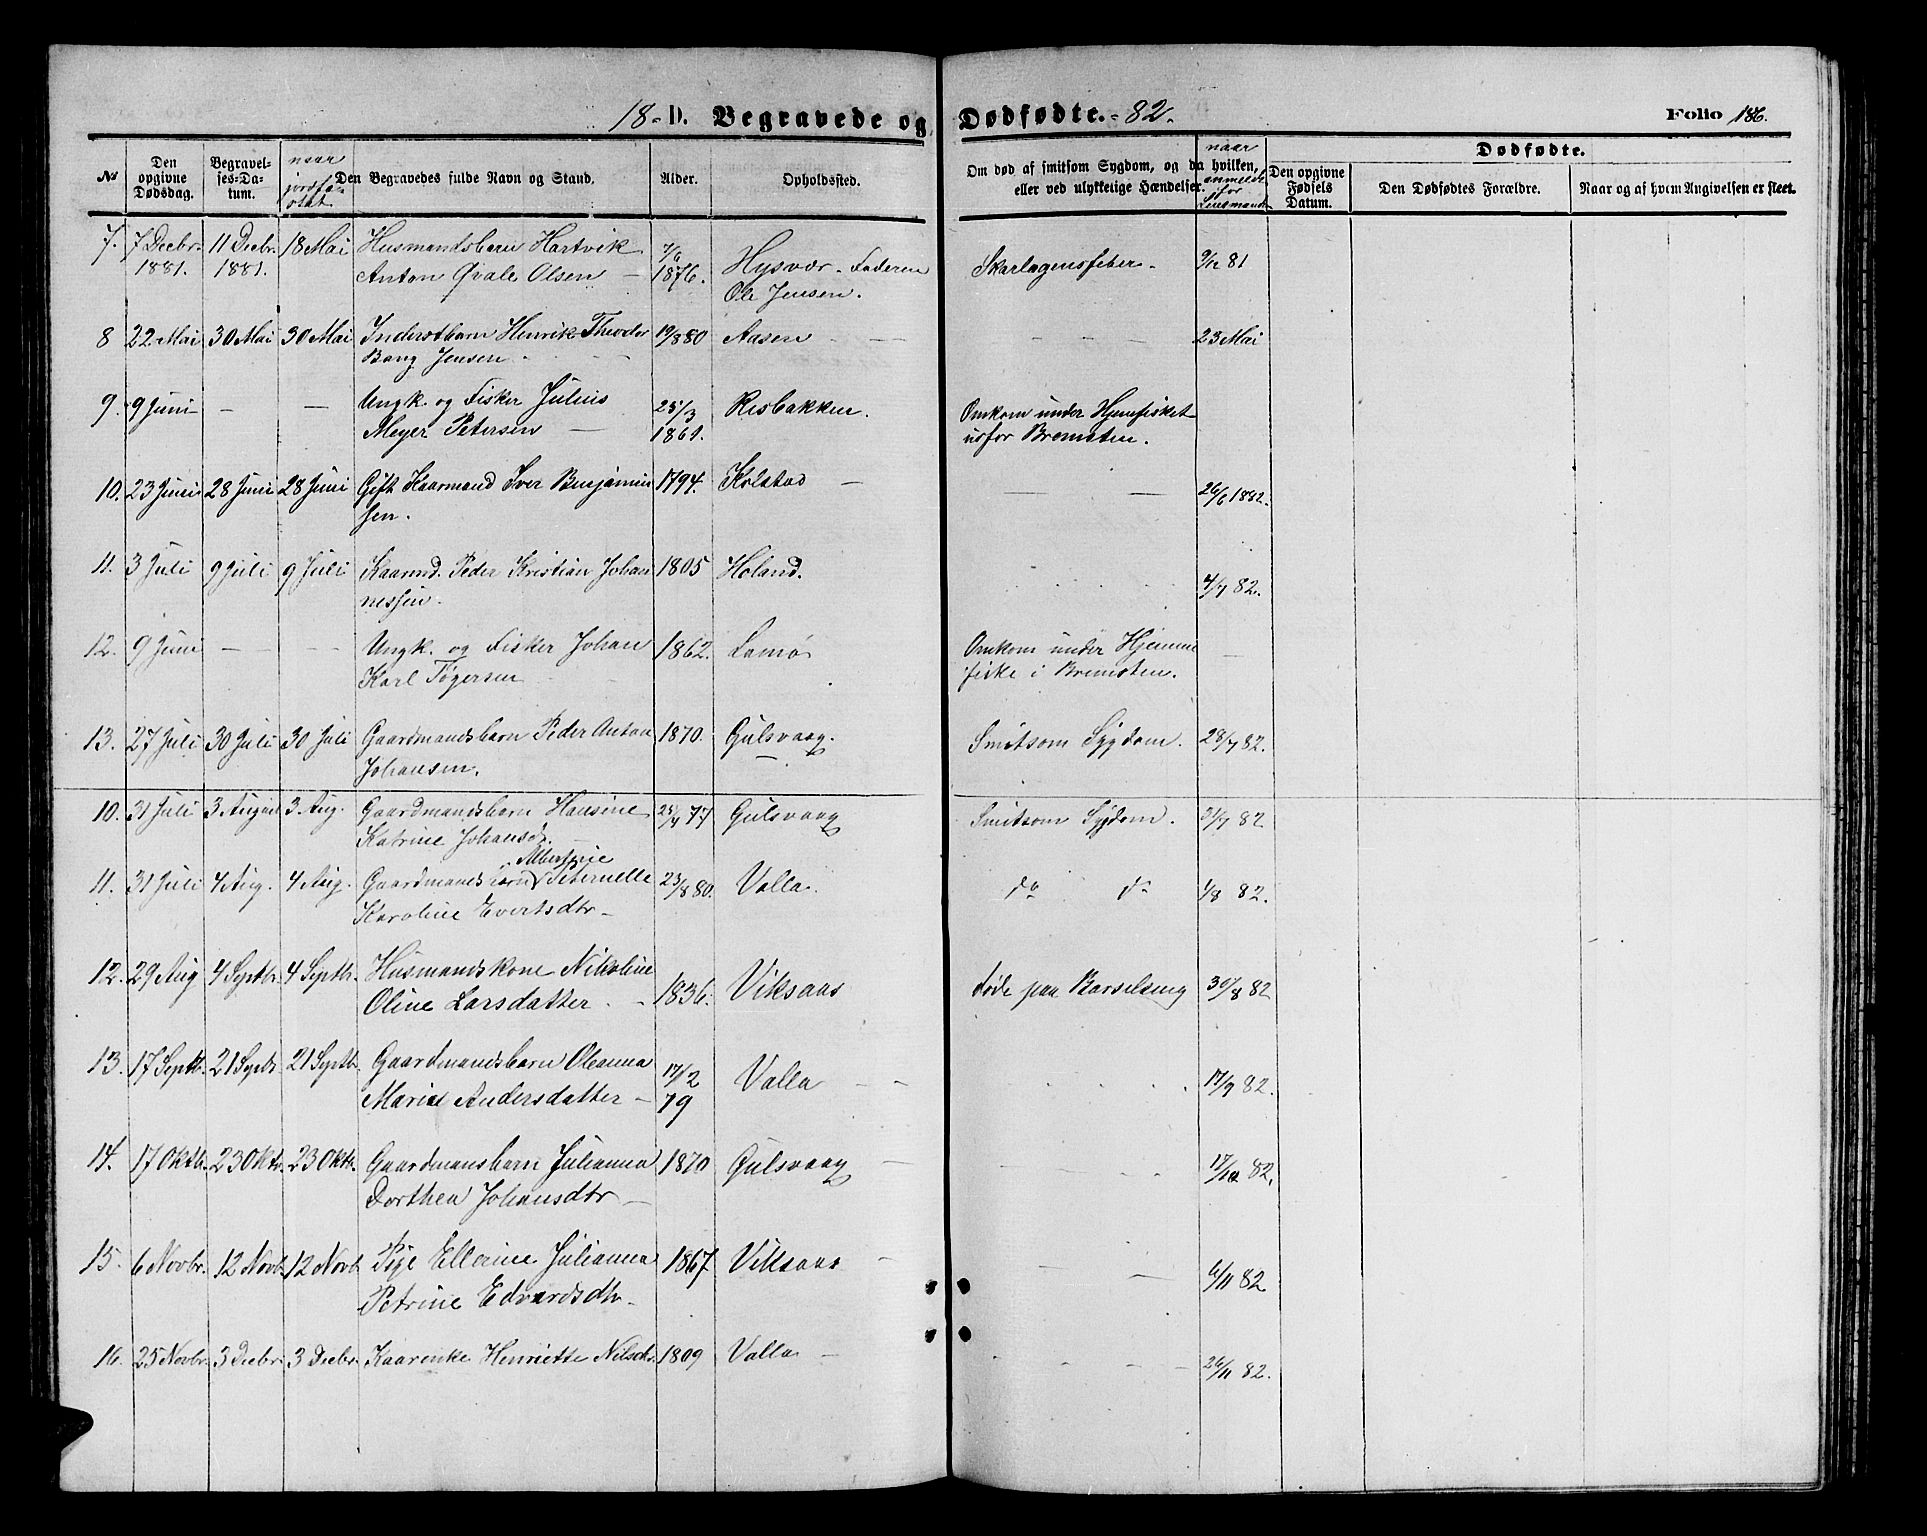 18- D. Begravede og Dødfødte. -82.
Folio 186.
№
Den opgivne Dødsdag.
Begravel-ses-Da-tum.
naar jordfæstet
Den Begravedes fulde Navn og Stand.
Alder.
Opholdssted.
Om død af smitsom Sygdom, og da hvilken,
eller ved ulykkelige Hændelser.
naar anmeldt for Lensmand
Dødfødte.
Den opgivne Fødsels Datum.
Den Dødfødtes Forældre.
Naar og af hvem Angivelsen er skeet.
7. 7 Decbr. 11 Decbr. 18 Mai Husmandsbarn Hartvik 7/6
1881. 1881. Anton Qvale Olsen — 1876. Hysvær - Faderen Skarlagensfeber - 9/12 81
Ole Jensen.
8 22 Mai 30 Mai 30 Mai Inderstbarn Henrik Theodor 19/8 80 Aasen - — — — — 23 Mai
Bang Jensen -
9. 9 Juni — — — Ungk. og Fisker Julius 25/3 Risbakken. Omkom under Hjemfisket
Meyer Petersen — 1861. udfor Bremsten.
10. 23 Juni 28 Juni 28 Juni Gift Kaarmand Iver Benjamin 1794. Kolstad — — — 26/6 1882.
sen.
11. 3 Juli 9 Juli 9 Juli Kaarmd. Peder Kristian Johan 1805 Holand. 4/7 82.
nessen.
12. 9 Juni — — — Ungk. og Fisker Johan 1862. Lamø Omkom under Hjemme —
Karl Tøgersen fiske i Bremsten.
13. 27 Juli 30 Juli 30 Juli Gaardmandsbarn Peder Anton 1870. Gulsvaag. Smitsom Sygdom. 28/7 82.
Johansen.
10. 31 Juli 3 August 3. Aug. Gaardmandsbarn Hansine 25/4 77 Gulsvaag Smitsom Sygdom. 31/7 82
Katrine Johansd.
Albertine
11. 31 Juli 4 Aug. 4 Aug. Gaardmandsbarn Peternelle 23/8 80. Valla. do do 1/8 82.
Karoline Evertsdtr -
12. 29 Aug 4 Septbr. 4 Septbr. Husmandskone Nikoline
Oline Larsdatter. - 1836. Viksaas døde paa Barselseng 30/8 82
13. 17 Septb. 21 Septb. 21 Septbr. Gaardmandsbarn Oleanna 17/2
Marie Andersdatter - 79 Valla - - 17/9 82.
14. 17 Oktb. 23 Oktr. 23 Oktb. Gaardmansbarn Julianna 1870 Gulsvaag — 17/10 82.
Dorthea Johansdtr —
15. 6 Novbr. 12 Novb. 12 Novb Pige Ellerine Julianna 1867 Viksaas - — 6/11 82
Petrine Edvardsdtr.
16. 25 Novbr. 3 Decbr. 3 Decbr. Kaarenke Henriette Nilsdtr. 1809 Valla — — — 26/11 82.